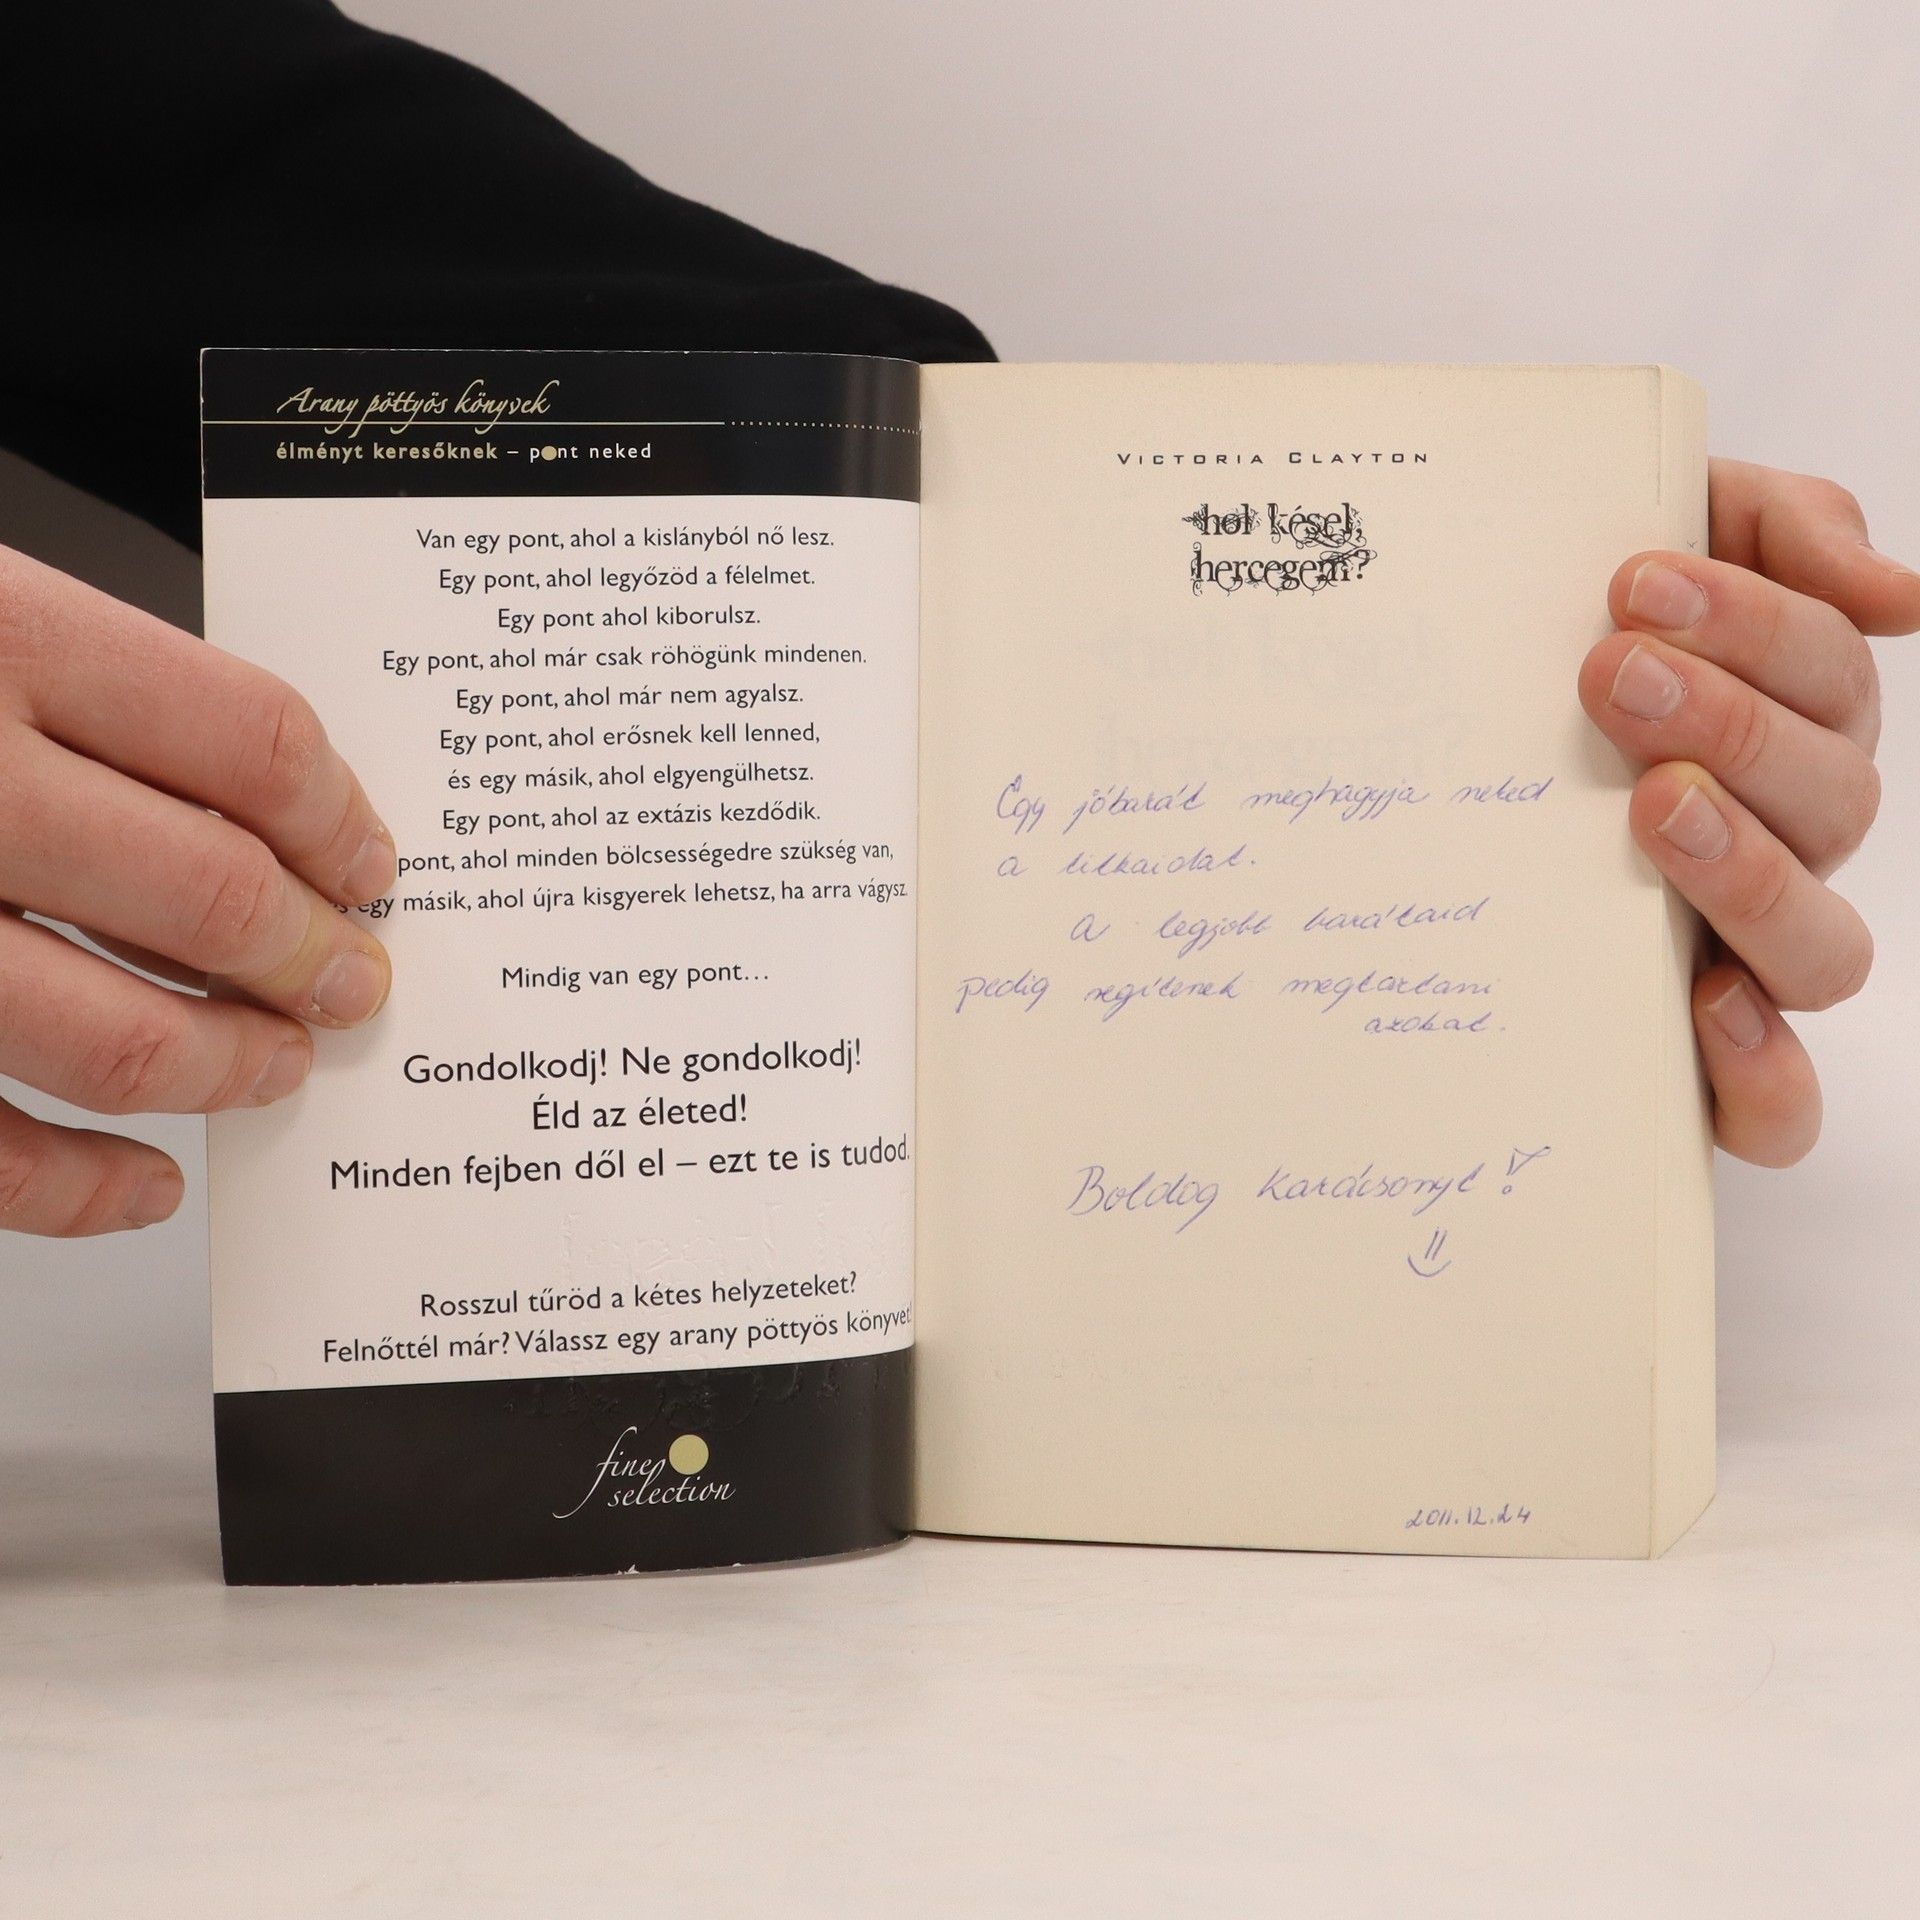 Arany pöttyös könyvek
élményt keresőknek – pont neked
Van egy pont, ahol a kislányból nő lesz.
Egy pont, ahol legyőzöd a félelmet.
Egy pont ahol kiborulsz.
Egy pont, ahol már csak röhögünk mindenen.
Egy pont, ahol már nem agyalsz.
Egy pont, ahol erősnek kell lenned,
és egy másik, ahol elgyengülhetsz.
Egy pont, ahol az extázis kezdődik.
pont, ahol minden bölcsességedre szükség van,
egy másik, ahol újra kisgyerek lehetsz, ha arra vágysz.
Mindig van egy pont...
Gondolkodj! Ne gondolkodj!
Éld az életed!
Minden fejben dől el – ezt te is tudod.
Rosszul tűröd a kétes helyzeteket?
Felnőttél már? Válassz egy arany pöttyös könyvet!
fine
selection
VICTORIA CLAYTON
hol késel,
hercegem?
Egy jóbarát meghagyja neked
a titkaidat.
A legjobb barátaid
pedig segítenek megtartani
azokat.
Boldog Karácsonyt!
2011.12.24